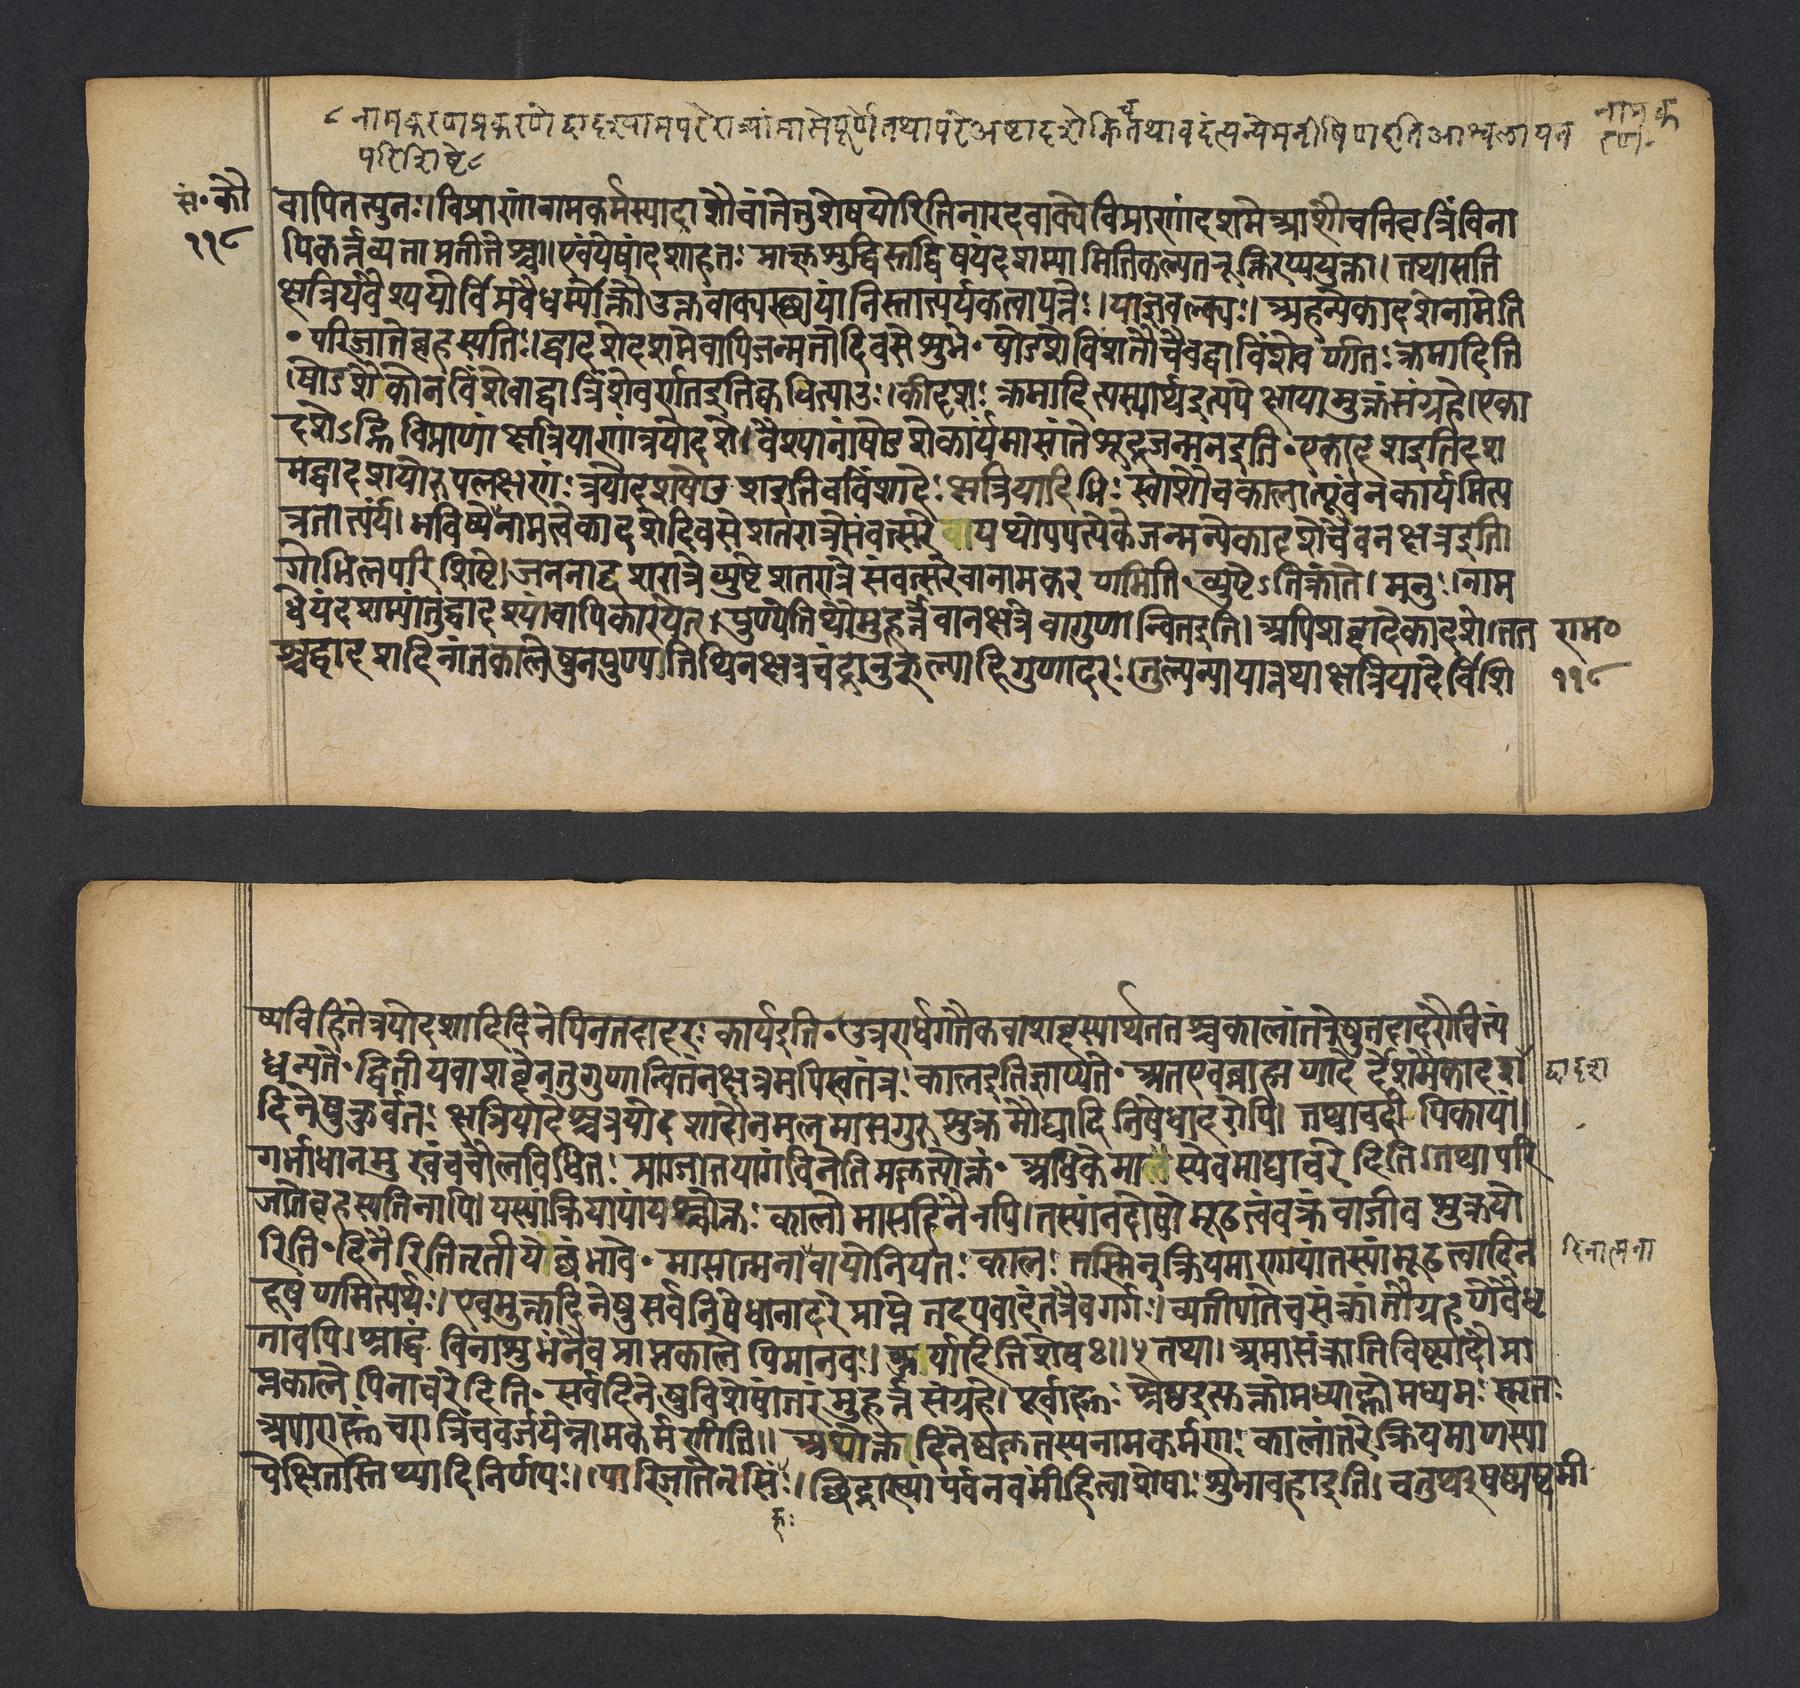 ८ नामकरणप्रकरणे द्वादश्यामपरे रात्र्यां मासे पूर्णे तथापरे अष्टादशेह्नि च तथा वदंत्यन्ये मनीषिण इति आश्वलायन
परिशिष्टे ८
नामक
रण॰
सं॰ कौ
११८
वापितत्पुनः।विप्राणांनामकर्मस्यादाशौचांतेतुशेषयोरितिनारदवाक्येविप्राणांदशमेआशौचनिवृत्तिंविना
पिकर्त्तव्यताप्रतीतेश्च॥एवंयेषांदशाहतःप्राक्शुद्धिस्तद्विषयंदशम्यामितिकल्पतरूक्तिरप्ययुक्ता।तथासति
क्षत्रियवैश्ययोर्विप्रवैधर्म्योक्तौउक्तवाक्यस्थायांनिस्तात्पर्यकत्वापत्तेः।याज्ञवल्क्यः।अहन्येकादशेनामेति
॰पारिजातेबृहस्पतिः।द्वादशेदशमेवापिजन्मतोदिवसेशुभे॰षोडशेविंशतौचैवद्वाविंशेवर्णतःक्रमादिति
षोडशेकोनविंशेवाद्वात्रिंशेवर्णतइतिक्वचित्पाठः।कीदृशःक्रमादित्यस्यार्थइत्यपेक्षायामुक्तंसंग्रहे।एका
दशेऽह्निविप्राणांक्षत्रियाणांत्रयोदशे।वैश्यानांषोडशेकार्यंमासांतेशूद्रजन्मनइति॰एकादशइतिदश
मद्वादशयोरुपलक्षणं।त्रयोदशषोडशइतिचविंशादेः।क्षत्रियादिभिःस्वाशौचकालात्पूर्वंनकार्यमित्य
त्रतात्पर्यं।भविष्येनामत्वेकादशेदिवसेशतरात्रेसंवत्सरेवायथोपपत्त्येकेजन्मन्येकादशेचैवनक्षत्रइति।
गोभिलपरिशिष्टे।जननाद्दशरात्रेव्युष्टेशतरात्रेसंवत्सरेवानामकरणमिति॰व्युष्टेऽतिक्रांते।मनुः।नाम
धेयंदशम्यांतुद्वादश्यांवापिकारयेत्।पुण्येतिथौमुहूर्त्तेवानक्षत्रेवागुणान्वितइति।अपिशब्दादेकादशे।तत
श्चद्वादशादिनांतकालेषुनपुण्यतिथिनक्षत्रचंद्रानुकूल्यादिगुणादरः।तुल्यन्यायात्तथाक्षत्रियादेर्विशि
राम॰
११८
ष्यविहितेत्रयोदशादिदिनेपिनतदादरःकार्यइति॰उत्तरार्धगतैकवाशब्दस्यार्थततश्चकालांतरेषुतदादरौचित्यं
ध्वन्यते॰द्वितीयवाशब्देनतुगुणान्वितंनक्षत्रमपिस्वतंत्रःकालइतिज्ञाप्यते॰अतएवब्राह्मणादेर्दशमैकादश
द्वादश
दिनेषुकुर्वतःक्षत्रियादेश्चत्रयोदशादौनमलमासगुरुशुक्रमौढ्यादिनिषेधादरोपि।तथाचदीपिकायां।
गर्भाधानमुखंचचौलविधितःप्राग्जातयागंविनेतिप्रकृत्योक्तं॰अधिकेमासेस्यैवमाद्याचरेदिति।तथापारि
जातेबृहस्पतिनापि।यस्यांक्रियायांयश्चोक्तःकालोमासदिनैरपि।तस्यांनदोषोमूढत्वंवक्रंवाजीवशुक्रयो
रिति॰दिनैरितितृतीयेत्थंभावे॰मासात्मनावायोनियतःकालःतस्मिन्क्रियमाणायांतस्यांमूढत्वादिन
दिनात्मना
दूषणमित्यर्थः।एवमुक्तदिनेषुसर्वनिषेधानादरेप्राप्तेतदपवादंतत्रैवगर्गः।व्यतीपातेचसंक्रांतौग्रहणेवैधृ
तावपि।श्राद्धंविनाशुभंनैवप्राप्तकालेपिमानवः।कुर्यादितिशेषः॥५तथा।अमासंक्रांतिविष्ट्यादौप्रा
प्तकालेपिनाचरेदिति॰सर्वदिनेषुविशेषांतरंमुहूर्त्तसंग्रहे।पूर्वाह्णःश्रेष्ठइत्युक्तोमध्याह्नोमध्यमःस्मृतः
अपराह्णंचरात्रिंचवर्जयेन्नामकर्मणीति॥अथोक्तदिनेष्वकृतस्यनामकर्मणःकालांतरेक्रियमाणस्या
पेक्षितस्तिथ्यादिनिर्णयः।पारिजातेनृसिंः।छिद्राख्यापर्वनवमीहित्वाशेषाःशुभावहाइति।चतुर्थषष्ठ्यष्टमी
हः